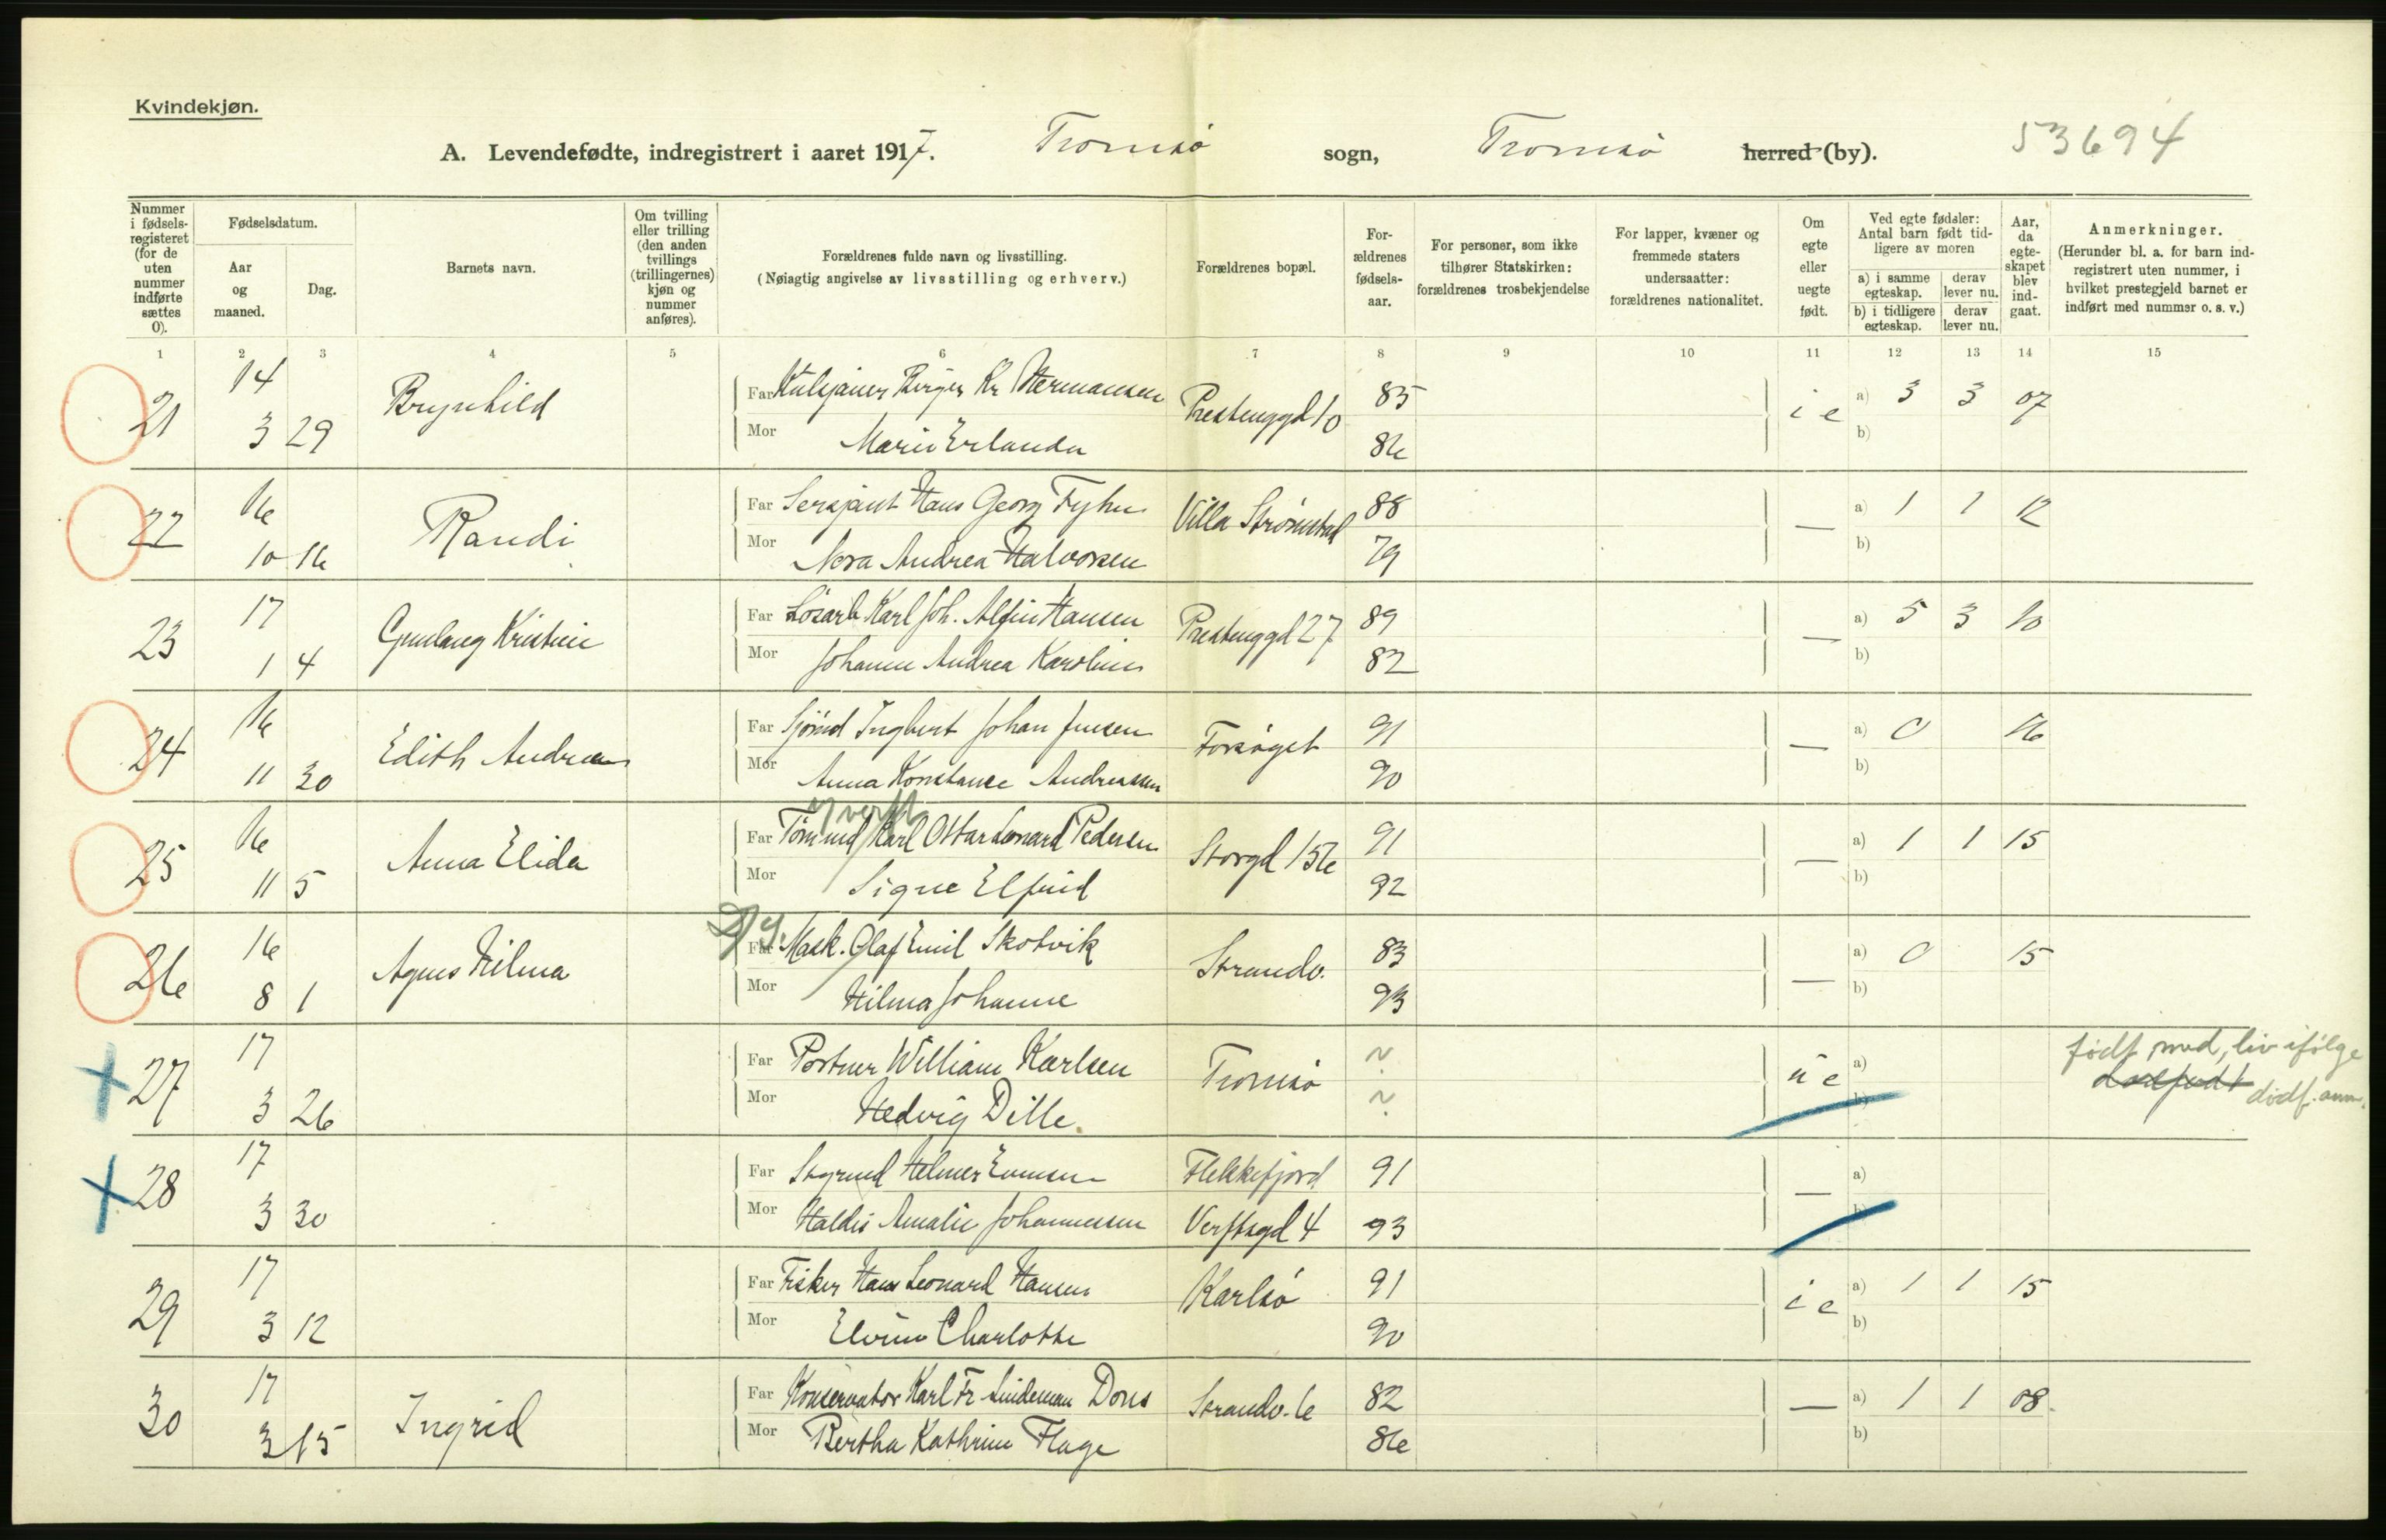 Kvindekjøn.
A. Levendefødte, indregistrert i aaret 1917. Tromsø sogn, Tromsø herred (by). 53694
Nummer i fødsels-registeret (for de uten nummer indførte sættes 0).
Fødselsdatum.
Aar og maaned.
Dag.
Barnets navn.
Om tvilling eller trilling (den anden tvillings (trillingernes) kjøn og nummer anføres).
Forældrenes fulde navn og livsstilling.
(Nøiagtig angivelse av livsstilling og erhverv.)
Forældrenes bopæl.
For-ældrenes fødsels-aar.
For personer, som ikke tilhører Statskirken: forældrenes trosbekjendelse
For lapper, kvæner og fremmede staters undersaatter: forældrenes nationalitet.
Om egte eller uegte født.
Ved egte fødsler: Antal barn født tid-ligere av moren
a) i samme egteskap. derav lever nu.
b) i tidligere egteskap. derav lever nu.
Aar, da egte-skapet blev ind-gaat.
Anmerkninger.
(Herunder bl. a. for barn ind-registrert uten nummer, i hvilket prestegjeld barnet er indført med nummer o. s. v.)
1 2 3 4 5 6 7 8 9 10 11 12 13 14 15
21 14 3 29 Brynhild
Far Birger Kr Hermansen Prestenggd 10 85 i e a) 3 3 07
Mor Marie Erlanda 86 b)
22 16 10 16 Randi
Far Sersjant Hans Georg Fyhn Villa Strømstad 88 — a) 1 1 12
Mor Nora Andrea Halvorsen 79 b)
23 17 1 4 Gunlaug Kristine
Far Løsarb Karl Joh. Alfin Hansen Prestenggd 27 89 — a) 5 3 10
Mor Johanne Andrea Karoline 82 b)
24 16 11 30 Edith Andrea
Far Sjømd Ingbert Johan Jensen Forsøget 91 — a) 0 16
Mor Anna Konstance Andreassen 90 b)
25 16 11 5 Anna Elida
y verft
Far Tømmd Karl Ottar Leonard Pedersen Storgd 156 91 — a) 1 1 15
Mor Signe Elfrid 92 b)
26 16 8 1 Agnes Hilma
Far Mask. Olaf Emil Skotvik Strandv. 83 — a) 0 15
Mor Hilma Johanne 93 b)
27 17 3 26
Far Portner William Karlsen Tromsø ~ u e a) født med liv ifølge
Mor Hedvig Dille ~ b) dødfødt dødf. anm.
28 17 3 30
Far Helmer Flekkefjord 91 — a)
Mor Haldis Amalie Johannessen Verftsgd 4 93 b)
29 17 3 12
Far Fisker Hans Leonard Hansen Karlsø 91 i e a) 1 1 15
Mor Elvine Charlotte 90 b)
30 17 3 15 Ingrid
Far Konservator Karl Fr. Lindeman Dons Strandv. 6 82 — a) 1 1 08
Mor Bertha Kathrine Flage 86 b)